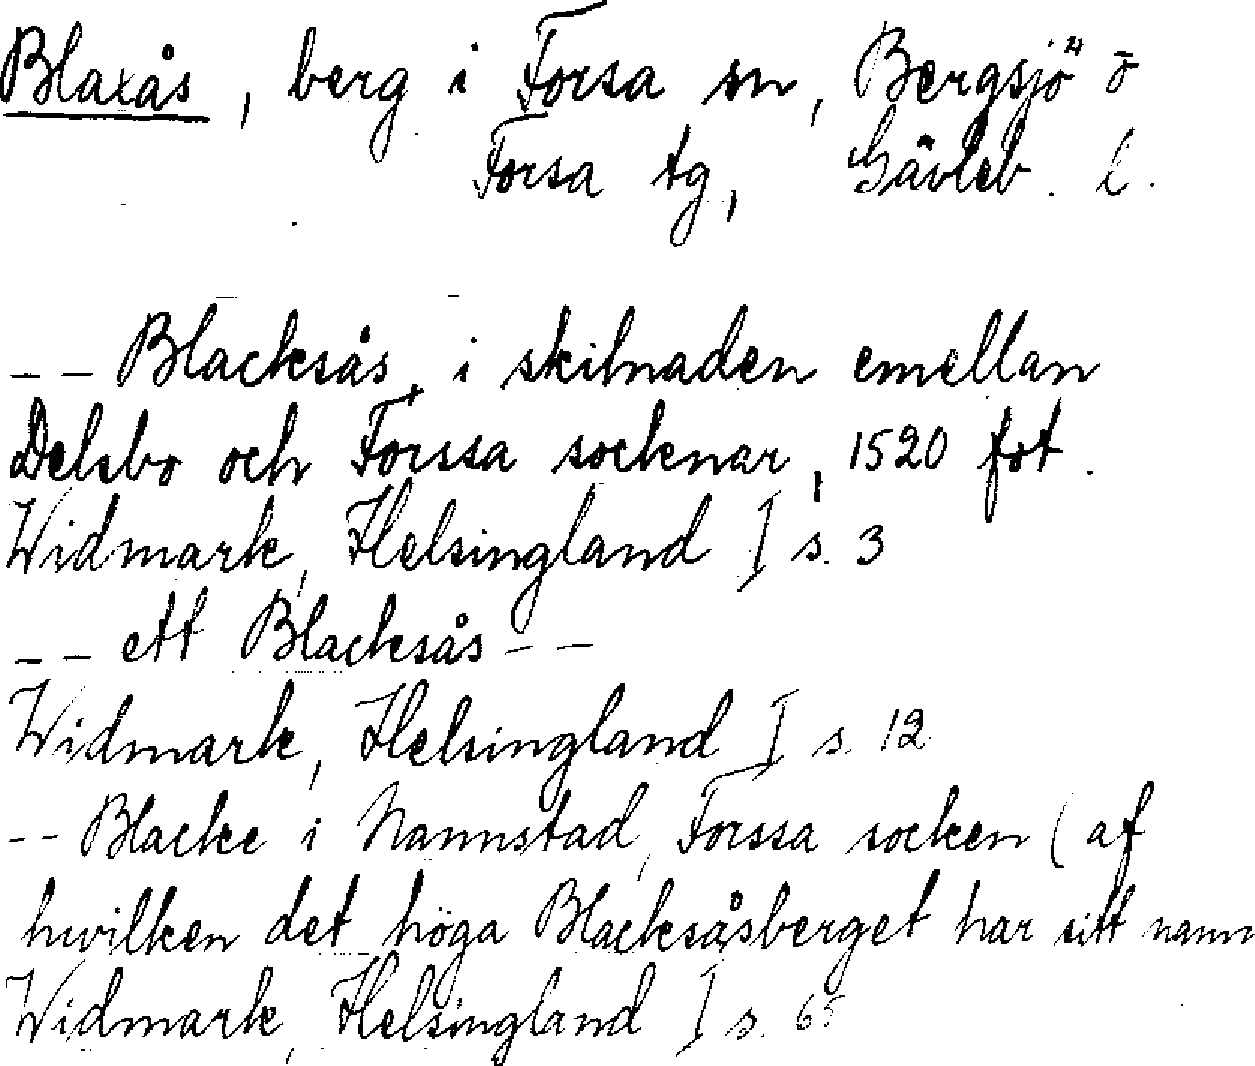 Blaxås, berg i Forsa sn, Bergsjö o
Forsa tg, Gävleb. l.
-- Blacksås, i skilnaden emellan
Delsbo och Forssa socknar, 1520 fot.
Widmark, Helsingland I s. 3
-- ett Blacksås --
Widmark, Helsingland I s. 12
-- Blacke i Nannstad, Forssa socken (af
hvilken det höga Blacksåsberget har sitt namn
Widmark, Helsingland I s. 65